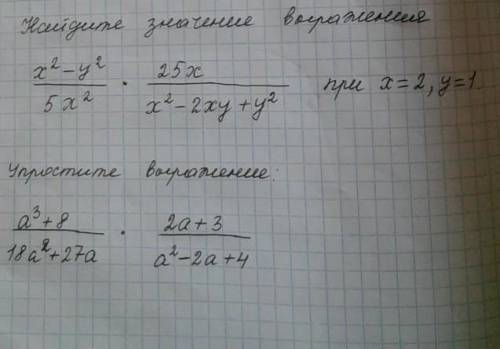 Найдите значение выражения
x² − y² / 5x² · 25x / x² − 2xy + y² при x = 2, y = 1
Упростите выражение:
a³ + 8 / 18a² + 27a · 2a + 3 / a² − 2a + 4